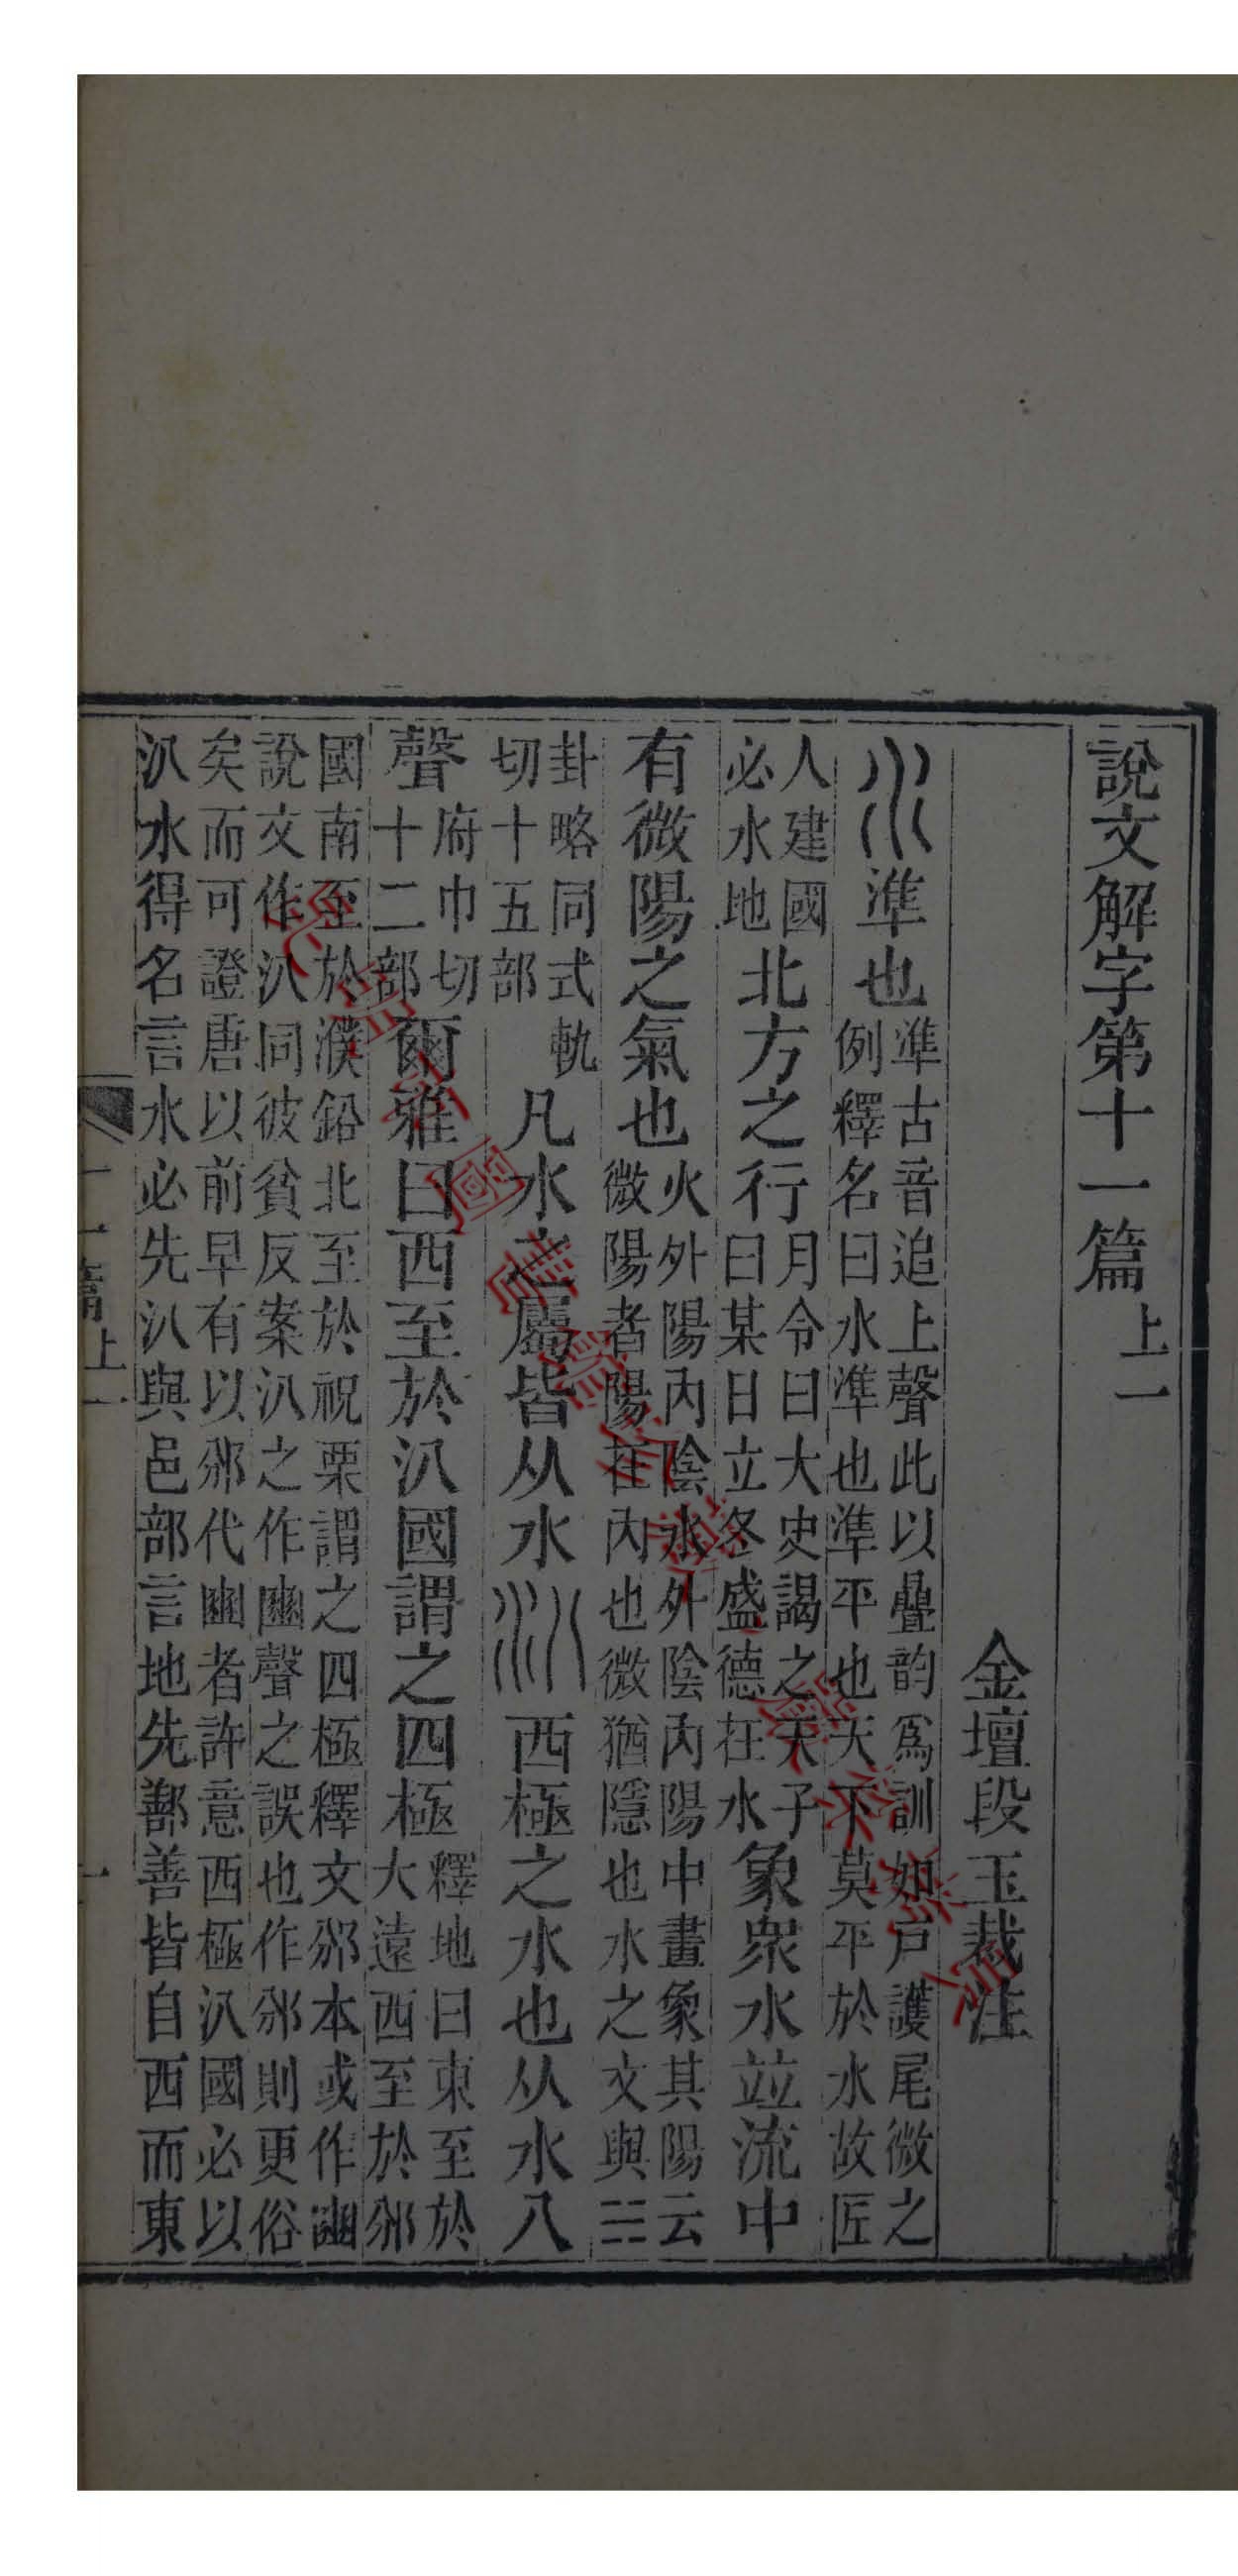 說文解字第十一篇 上一
金壇段玉裁注
水 準也 準古音追上聲此以疊韵爲訓如戶護尾微之例釋名曰水準也準平也天下莫平於水故匠
人建國必水地 北方之行 月令曰大史謁之天子曰某日立冬盛德在水 象衆水竝流中
有微陽之氣也 火外陽內陰水外陰內陽中畫象其陽云微陽者陽在內也微猶隱也水之文與☵
卦略同式軌切十五部 凡水之屬皆从水 汃 西極之水也从水八
聲 府巾切十二部 爾雅曰西至於汃國謂之四極 釋地曰東至於大遠西至於邠
國南至於濮鉛北至於祝栗謂之四極釋文邠本或作豳說文作汃同彼貧反案汃之作豳聲之誤也作邠則更俗
矣而可證唐以前早有以邠代豳者許意西極汃國必以汃水得名言水必先汃與邑部言地先鄯善皆自西而東